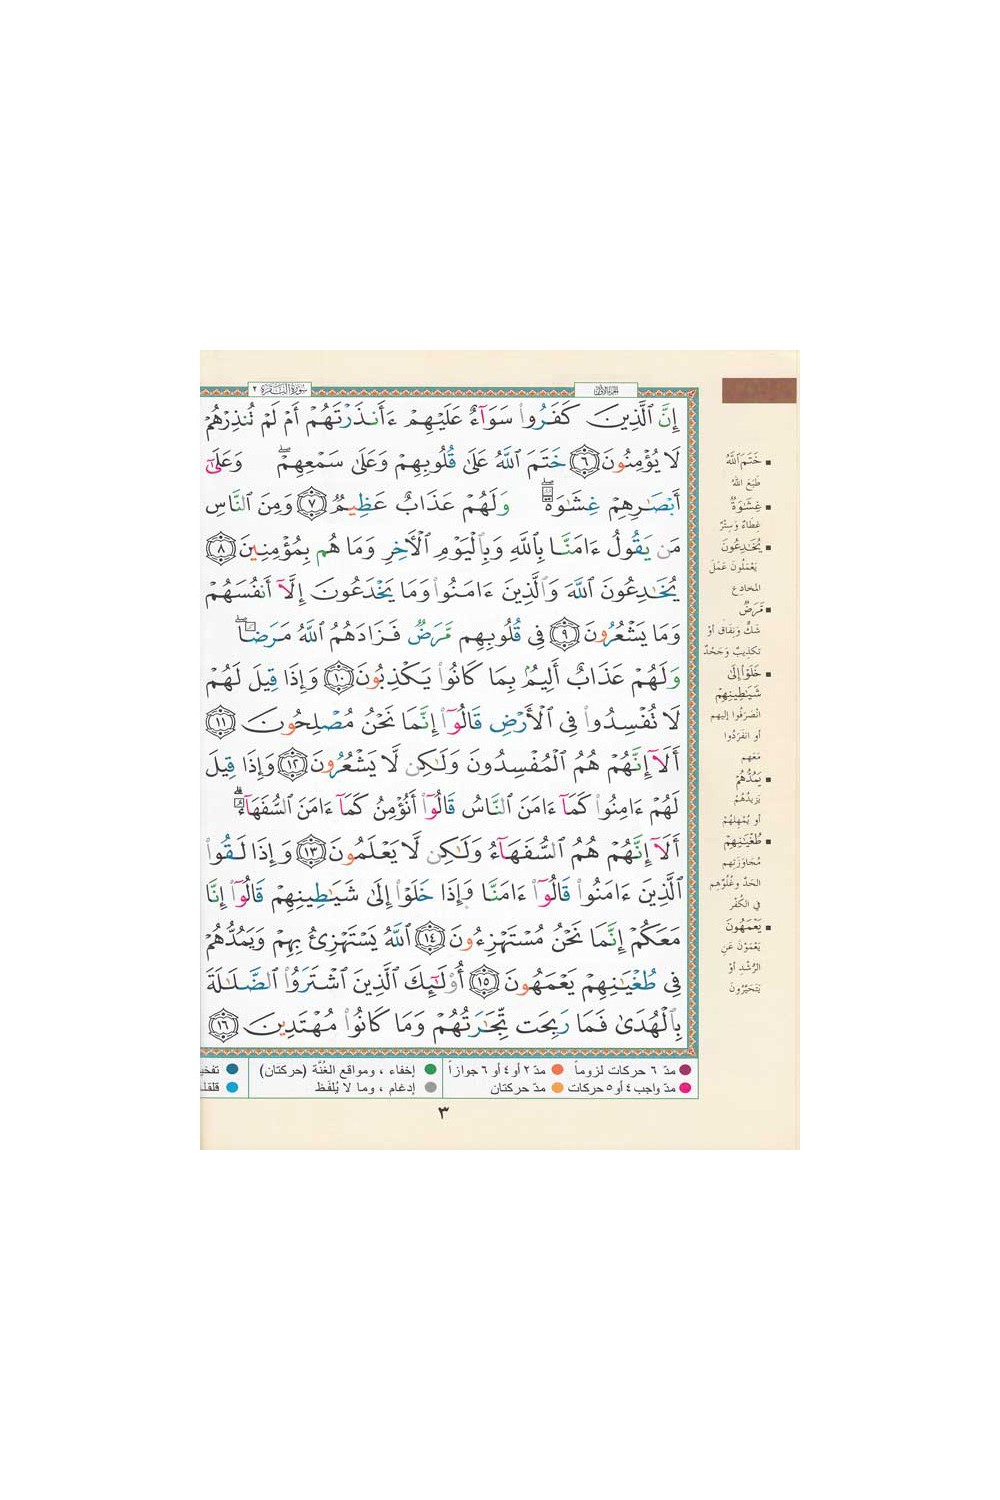 سورة البقرة ٢
الجزء الأول
إِنَّ ٱلَّذِينَ كَفَرُوا۟ سَوَآءٌ عَلَيْهِمْ ءَأَنذَرْتَهُمْ أَمْ لَمْ تُنذِرْهُمْ
لَا يُؤْمِنُونَ ٦ خَتَمَ ٱللَّهُ عَلَىٰ قُلُوبِهِمْ وَعَلَىٰ سَمْعِهِمْ ۖ وَعَلَىٰٓ
أَبْصَٰرِهِمْ غِشَٰوَةٌ ۖ وَلَهُمْ عَذَابٌ عَظِيمٌ ٧ وَمِنَ ٱلنَّاسِ
مَن يَقُولُ ءَامَنَّا بِٱللَّهِ وَبِٱلْيَوْمِ ٱلْـَٔاخِرِ وَمَا هُم بِمُؤْمِنِينَ ٨
يُخَٰدِعُونَ ٱللَّهَ وَٱلَّذِينَ ءَامَنُوا۟ وَمَا يَخْدَعُونَ إِلَّآ أَنفُسَهُمْ
وَمَا يَشْعُرُونَ ٩ فِى قُلُوبِهِم مَّرَضٌ فَزَادَهُمُ ٱللَّهُ مَرَضًا ۖ
وَلَهُمْ عَذَابٌ أَلِيمٌۢ بِمَا كَانُوا۟ يَكْذِبُونَ ١٠ وَإِذَا قِيلَ لَهُمْ
لَا تُفْسِدُوا۟ فِى ٱلْأَرْضِ قَالُوٓا۟ إِنَّمَا نَحْنُ مُصْلِحُونَ ١١
أَلَآ إِنَّهُمْ هُمُ ٱلْمُفْسِدُونَ وَلَٰكِن لَّا يَشْعُرُونَ ١٢ وَإِذَا قِيلَ
لَهُمْ ءَامِنُوا۟ كَمَآ ءَامَنَ ٱلنَّاسُ قَالُوٓا۟ أَنُؤْمِنُ كَمَآ ءَامَنَ ٱلسُّفَهَآءُ ۗ
أَلَآ إِنَّهُمْ هُمُ ٱلسُّفَهَآءُ وَلَٰكِن لَّا يَعْلَمُونَ ١٣ وَإِذَا لَقُوا۟
ٱلَّذِينَ ءَامَنُوا۟ قَالُوٓا۟ ءَامَنَّا وَإِذَا خَلَوْا۟ إِلَىٰ شَيَٰطِينِهِمْ قَالُوٓا۟ إِنَّا
مَعَكُمْ إِنَّمَا نَحْنُ مُسْتَهْزِءُونَ ١٤ ٱللَّهُ يَسْتَهْزِئُ بِهِمْ وَيَمُدُّهُمْ
فِى طُغْيَٰنِهِمْ يَعْمَهُونَ ١٥ أُو۟لَٰٓئِكَ ٱلَّذِينَ ٱشْتَرَوُا۟ ٱلضَّلَٰلَةَ
بِٱلْهُدَىٰ فَمَا رَبِحَت تِّجَٰرَتُهُمْ وَمَا كَانُوا۟ مُهْتَدِينَ ١٦
خَتَمَ ٱللَّهُ
طَبَعَ اللهُ
غِشَٰوَةٌ
غِطاءٌ وَسِتْرٌ
يُخَٰدِعُونَ
يَعْمَلُونَ عَمَلَ
المخادِع
مَّرَضٌ
شَكٌّ وَنِفَاق أوْ
تكذيبٌ وَجَحْدٌ
خَلَوْا۟ إِلَىٰ
شَيَٰطِينِهِمْ
انْصَرَفُوا إليهم
أو انفَرَدُوا
مَعَهم
يَمُدُّهُمْ
يَزيدُهُمْ
أو يُمْهِلهُمْ
طُغْيَٰنِهِمْ
مُجَاوَزَتِهم
الحَدَّ وغُلُوِّهِم
فِي الكُفْر
يَعْمَهُونَ
يَعْمَوْنَ عَنِ
الرُّشْدِ أوْ
يَتَحَيَّرُونَ
مدّ ٦ حركات لزوماً مدّ ٢ أو ٤ أو ٦ جوازاً إخفاء ، ومواقع الغُنَّة (حركتان)
مدّ واجب ٤ أو ٥ حركات مدّ حركتان إدغام ، وما لا يُلفَظ
٣